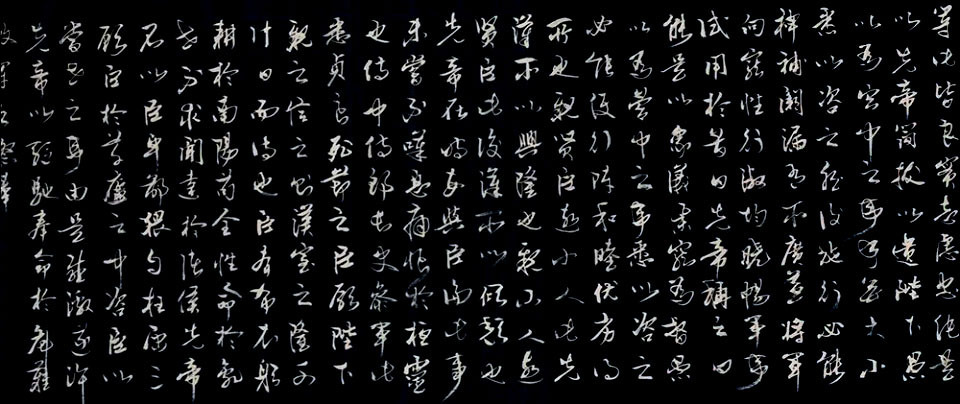 等此皆良實志慮忠純是
以先帝簡拔以遺陛下愚
以為宮中之事事無大小
悉以咨之然後施行必能
裨補闕漏有所廣益將軍
向寵性行淑均曉暢軍事
試用於昔日先帝稱之曰
能是以眾議舉寵為督愚
以為營中之事悉以咨之
必能使行陣和睦優劣得
所也親賢臣遠小人此先
漢所以興隆也親小人遠
賢臣此後漢所以傾頹也
先帝在時每與臣論此事
未嘗不嘆息痛恨於桓靈
也侍中侍郎長史參軍此
悉貞良死節之臣願陛下
親之信之則漢室之隆可
計日而待也臣本布衣躬
耕於南陽苟全性命於亂
世不求聞達於諸侯先帝
不以臣卑鄙猥自枉屈三
顧臣於草廬之中咨臣以
當世之事由是感激遂許
先帝以驅馳奉命於危難